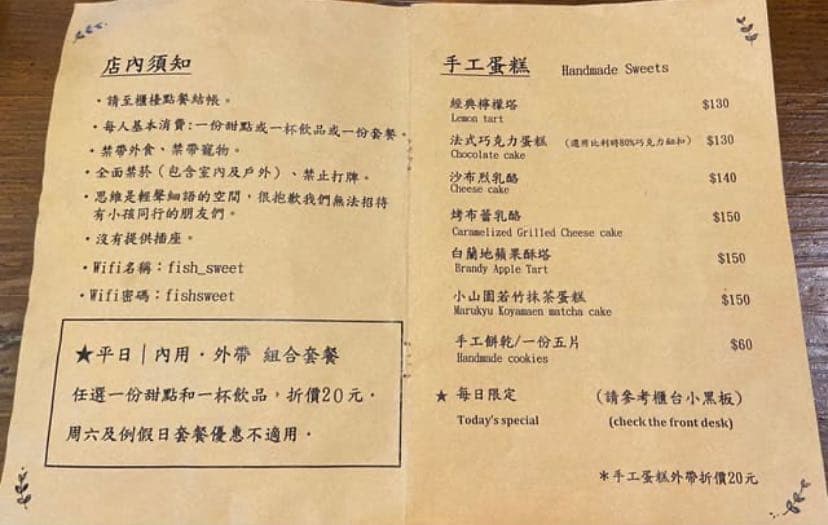 店內須知
・請至櫃檯點餐結帳。
・每人基本消費:一份甜點或一杯飲品或一份套餐。
・禁帶外食、禁帶寵物。
・全面禁菸(包含室內及戶外)、禁止打牌。
・思維是輕聲細語的空間,很抱歉我們無法招待
有小孩同行的朋友們。
・沒有提供插座。
・Wifi名稱:fish_sweet
・Wifi密碼:fishsweet
★平日|內用・外帶 組合套餐
任選一份甜點和一杯飲品,折價20元。
周六及例假日套餐優惠不適用。
手工蛋糕 Handmade Sweets
經典檸檬塔 $130
Lemon tart
法式巧克力蛋糕 (選用比利時80%巧克力鈕扣) $130
Chocolate cake
沙布烈乳酪 $140
Cheese cake
烤布蕾乳酪 $150
Caramelized Grilled Cheese cake
白蘭地蘋果酥塔 $150
Brandy Apple Tart
小山園若竹抹茶蛋糕 $150
Marukyu Koyamaen matcha cake
手工餅乾/一份五片 $60
Handmade cookies
★ 每日限定 (請參考櫃台小黑板)
Today's special (check the front desk)
*手工蛋糕外帶折價20元